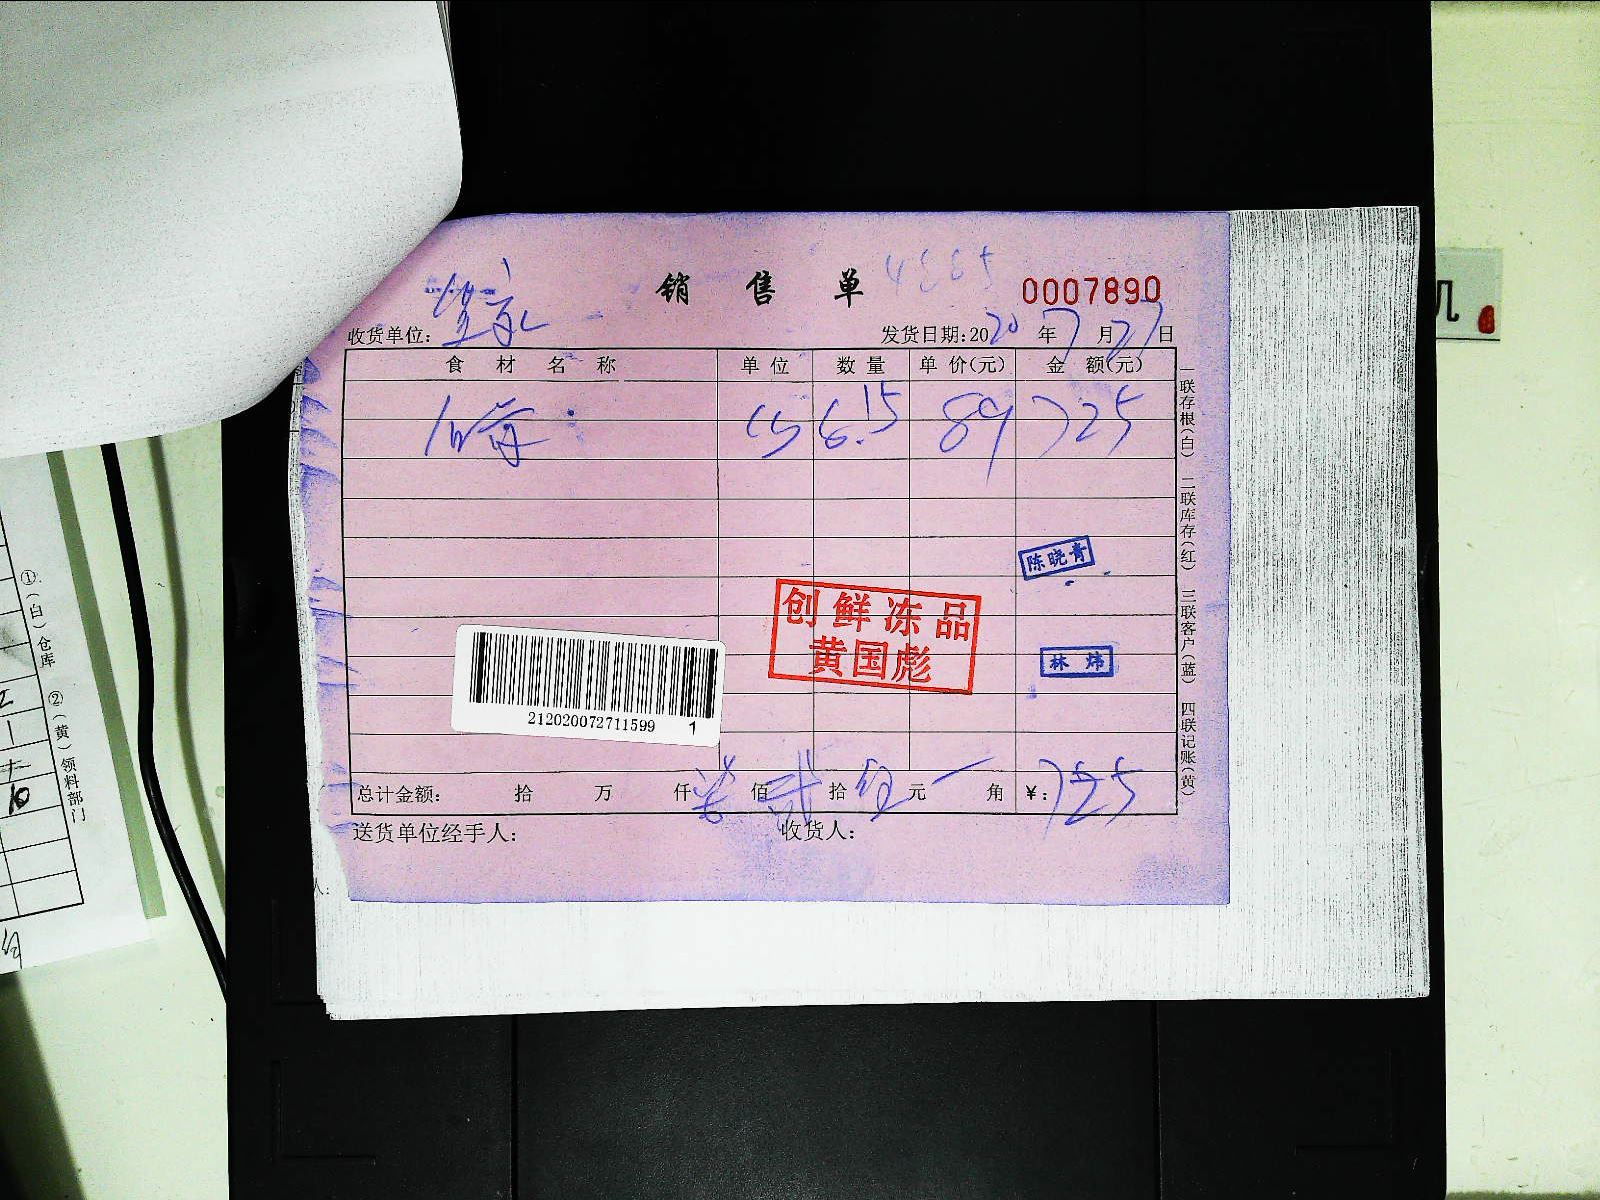 销售单 0007890
收货单位: 发货日期:2020年7月27日
食材名称 单位 数量 单价(元) 金额(元)
8.15 89 725
陈晓青
创鲜冻品
黄国彪
林炜
212020072711599 1
总计金额: 拾 万 仟 柒佰 贰拾 伍元 角 ¥:725
送货单位经手人: 收货人:
一联存根(白) 二联库存(红) 三联客户(蓝) 四联记账(黄)
①(白)仓库 ②(黄)领料部门
10
机